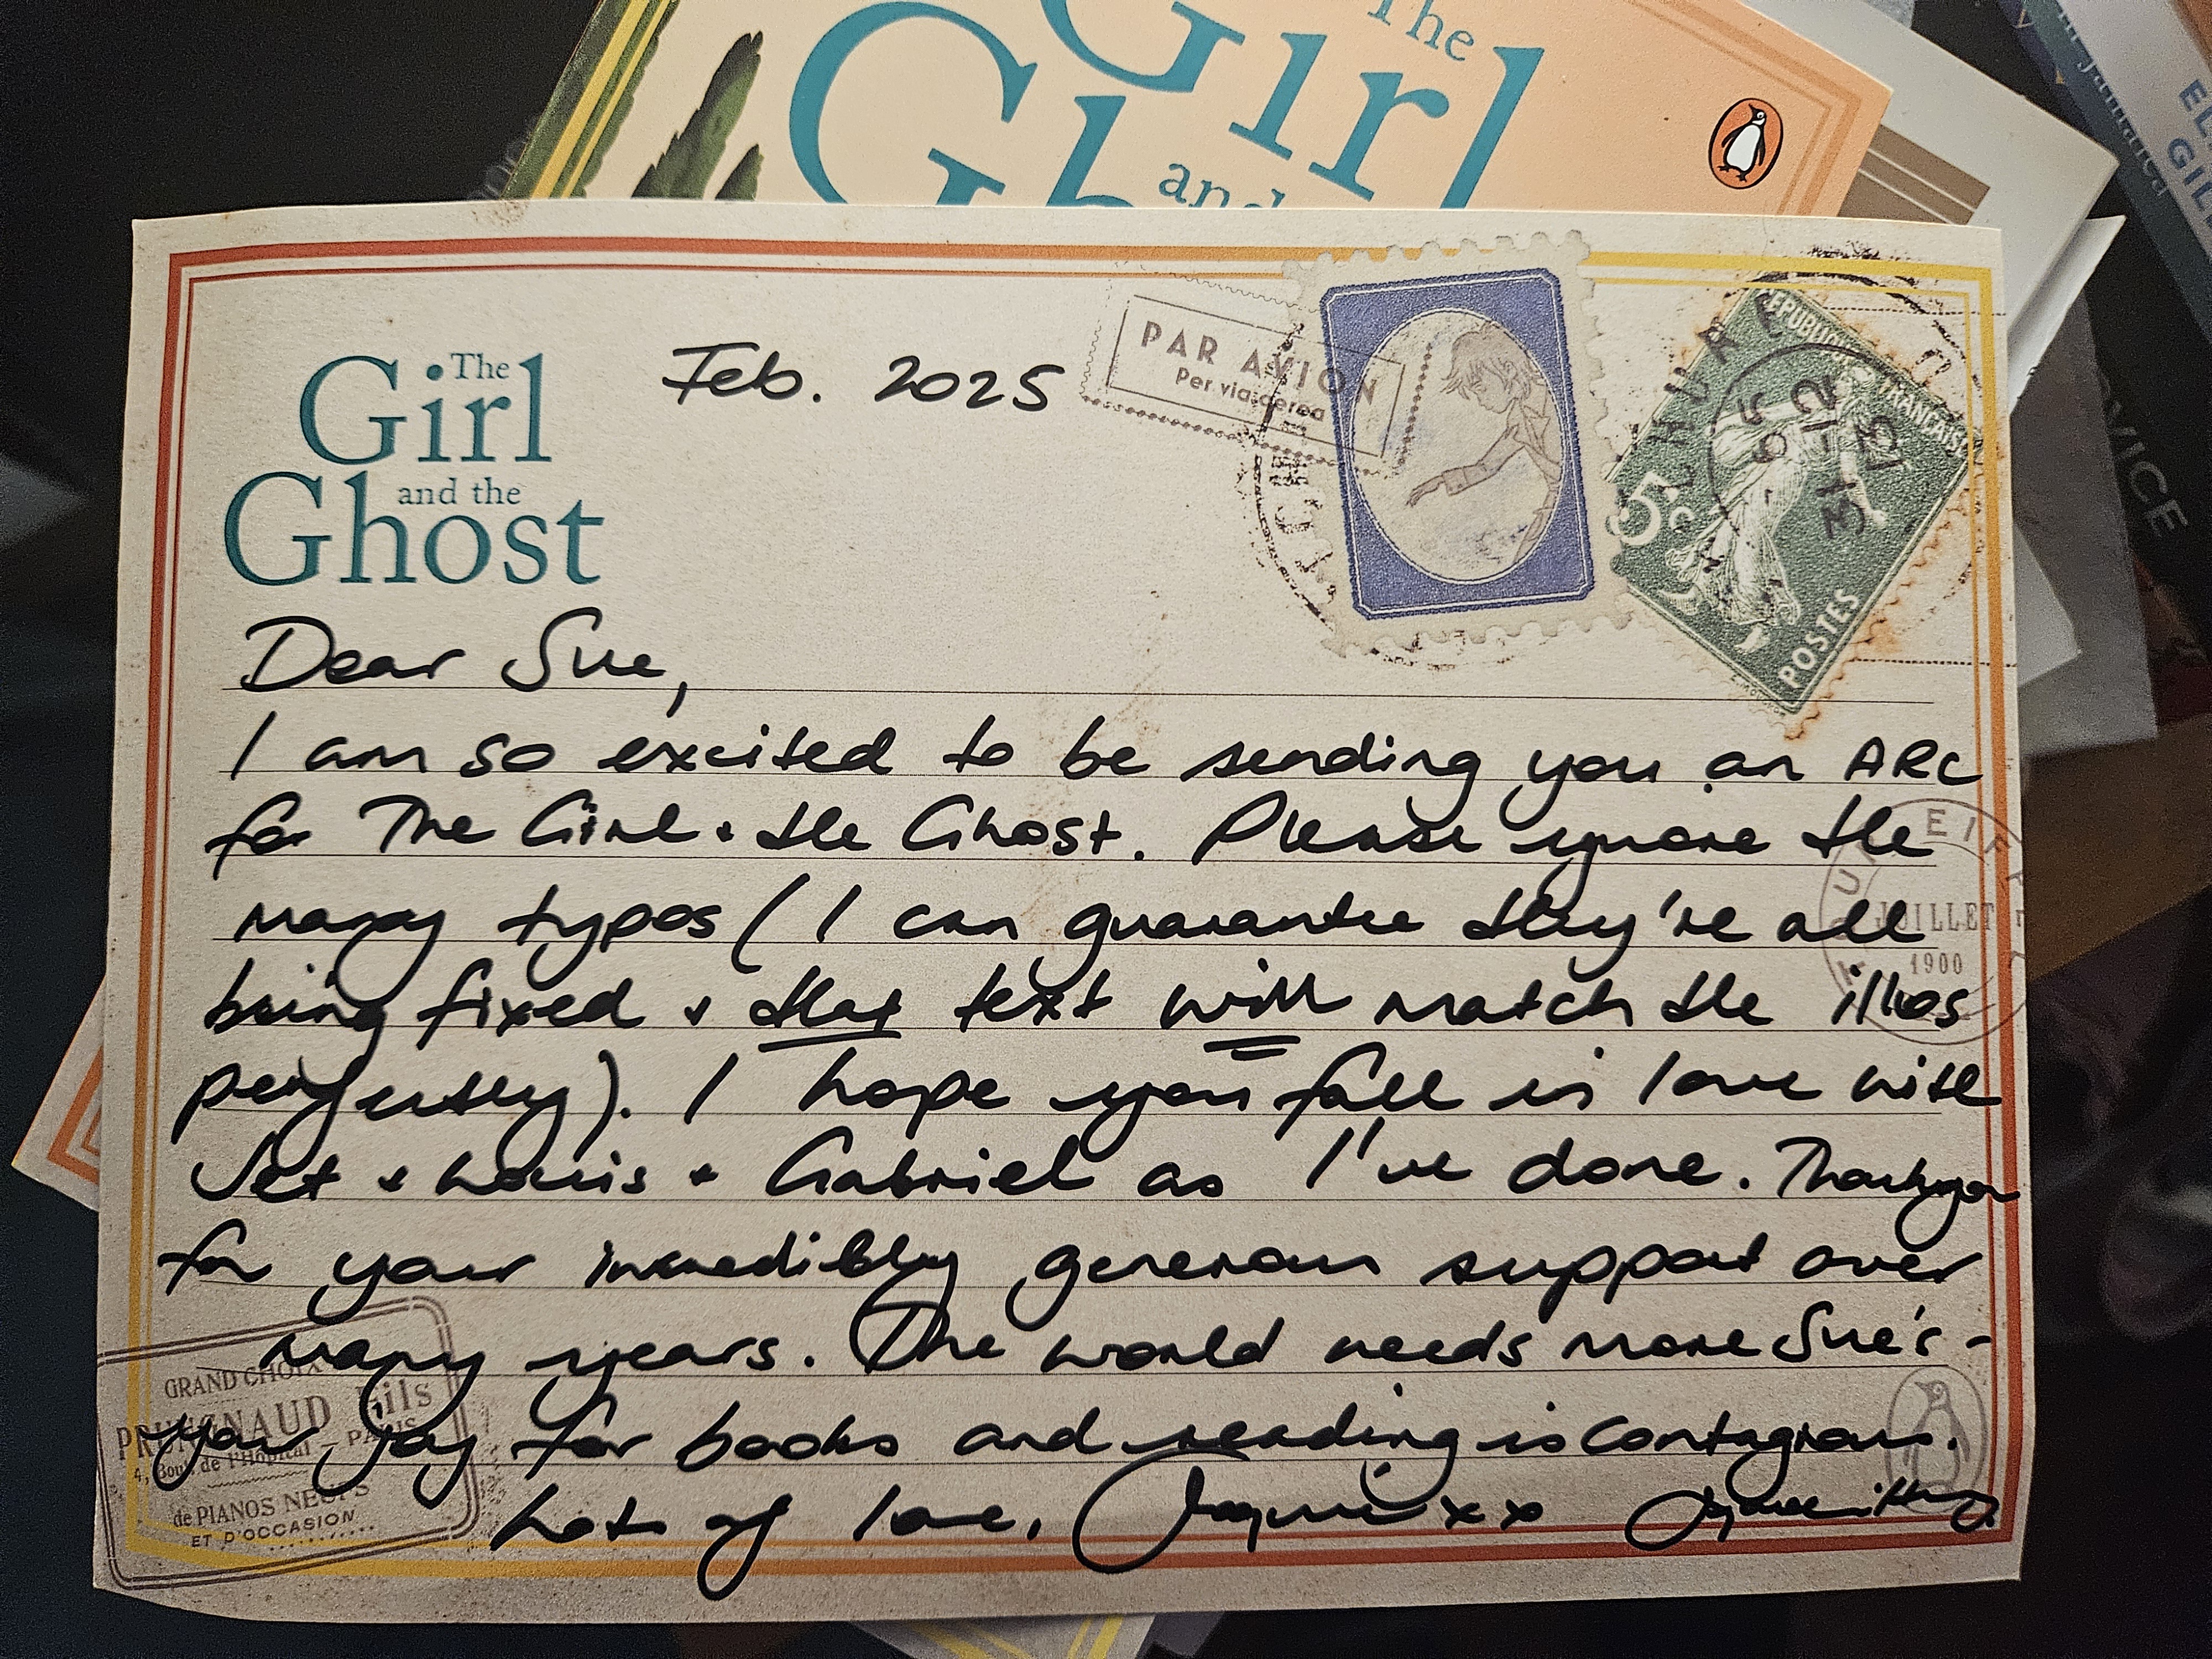 The
Girl
and
Gh
EL
GIL
VICE
The
Girl
and the
Ghost
Feb. 2025
PAR AVION
Per via aerea
REPUBLIQUE FRANÇAISE
5c
31-12
13
POSTES
Dear Sue,
I am so excited to be sending you an ARC
for The Girl + the Ghost. Please ignore the
many typos (I can guarantee they're all
being fixed + that text will match the illos
perfectly). I hope you fall in love with
Jet + Louis + Gabriel as I've done. Thankyou
for your incredibly generous support over
many years. The world needs more Sue's -
your joy for books and reading is contagious.
Lots of love, Jacqueline xx
JUILLET
1900
GRAND CHOIX
PRUNGNAUD Fils
4, Boul. de l'Hôpital - PARIS
de PIANOS NEUFS
ET D'OCCASION